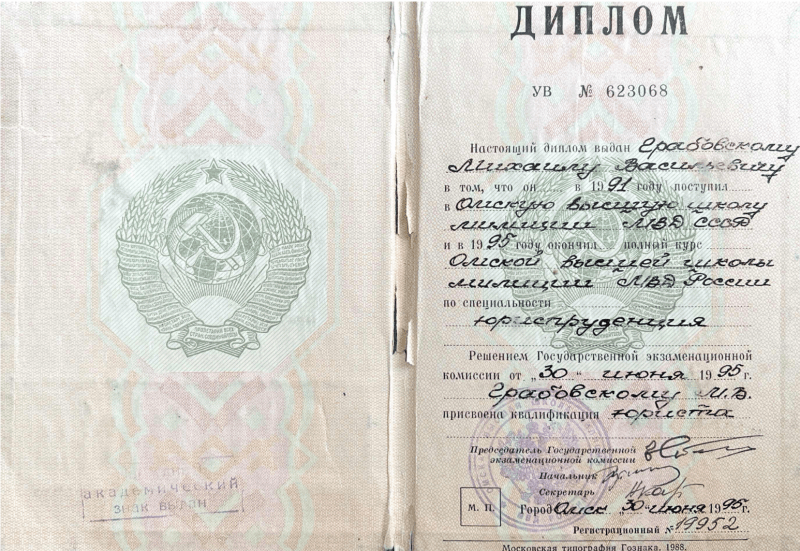 академический
знак выдан
ДИПЛОМ
УВ № 623068
Настоящий диплом выдан Грабовскому
Михаилу Васильевичу
в том, что он в 1991 году поступил
в Омскую высшую школу
милиции МВД СССР
и в 1995 году окончил полный курс
Омской высшей школы
милиции МВД России
по специальности
юриспруденция
Решением Государственной экзаменационной
комиссии от „30“ июня 1995 г.
Грабовскому М.В.
присвоена квалификация юриста
Председатель Государственной
экзаменационной комиссии
Начальник
Секретарь
М. П.
Город Омск „30“ июня 1995 г.
Регистрационный № 19952
Московская типография Гознака. 1988.